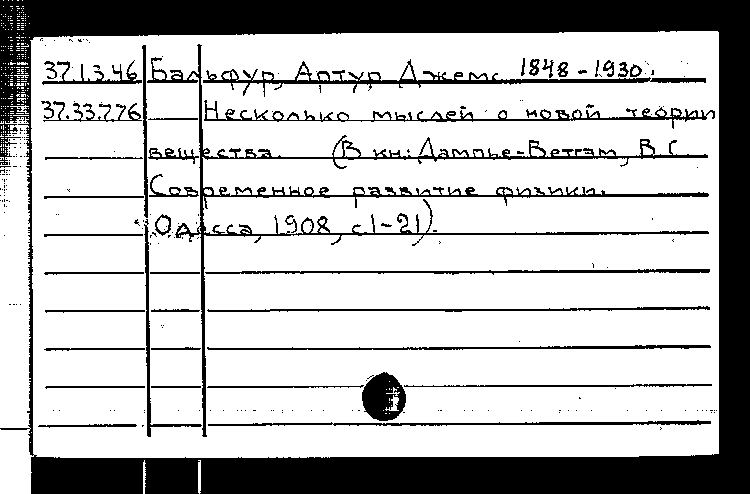 37.1.3.46 Бальфур, Артур Джемс 1848-1930.
37.33.7.76 Несколько мыслей о новой теории
вещества. (В кн: Дампье-Ветгам, В.С.
Современное развитие физики.
Одесса, 1908, с.1-21).